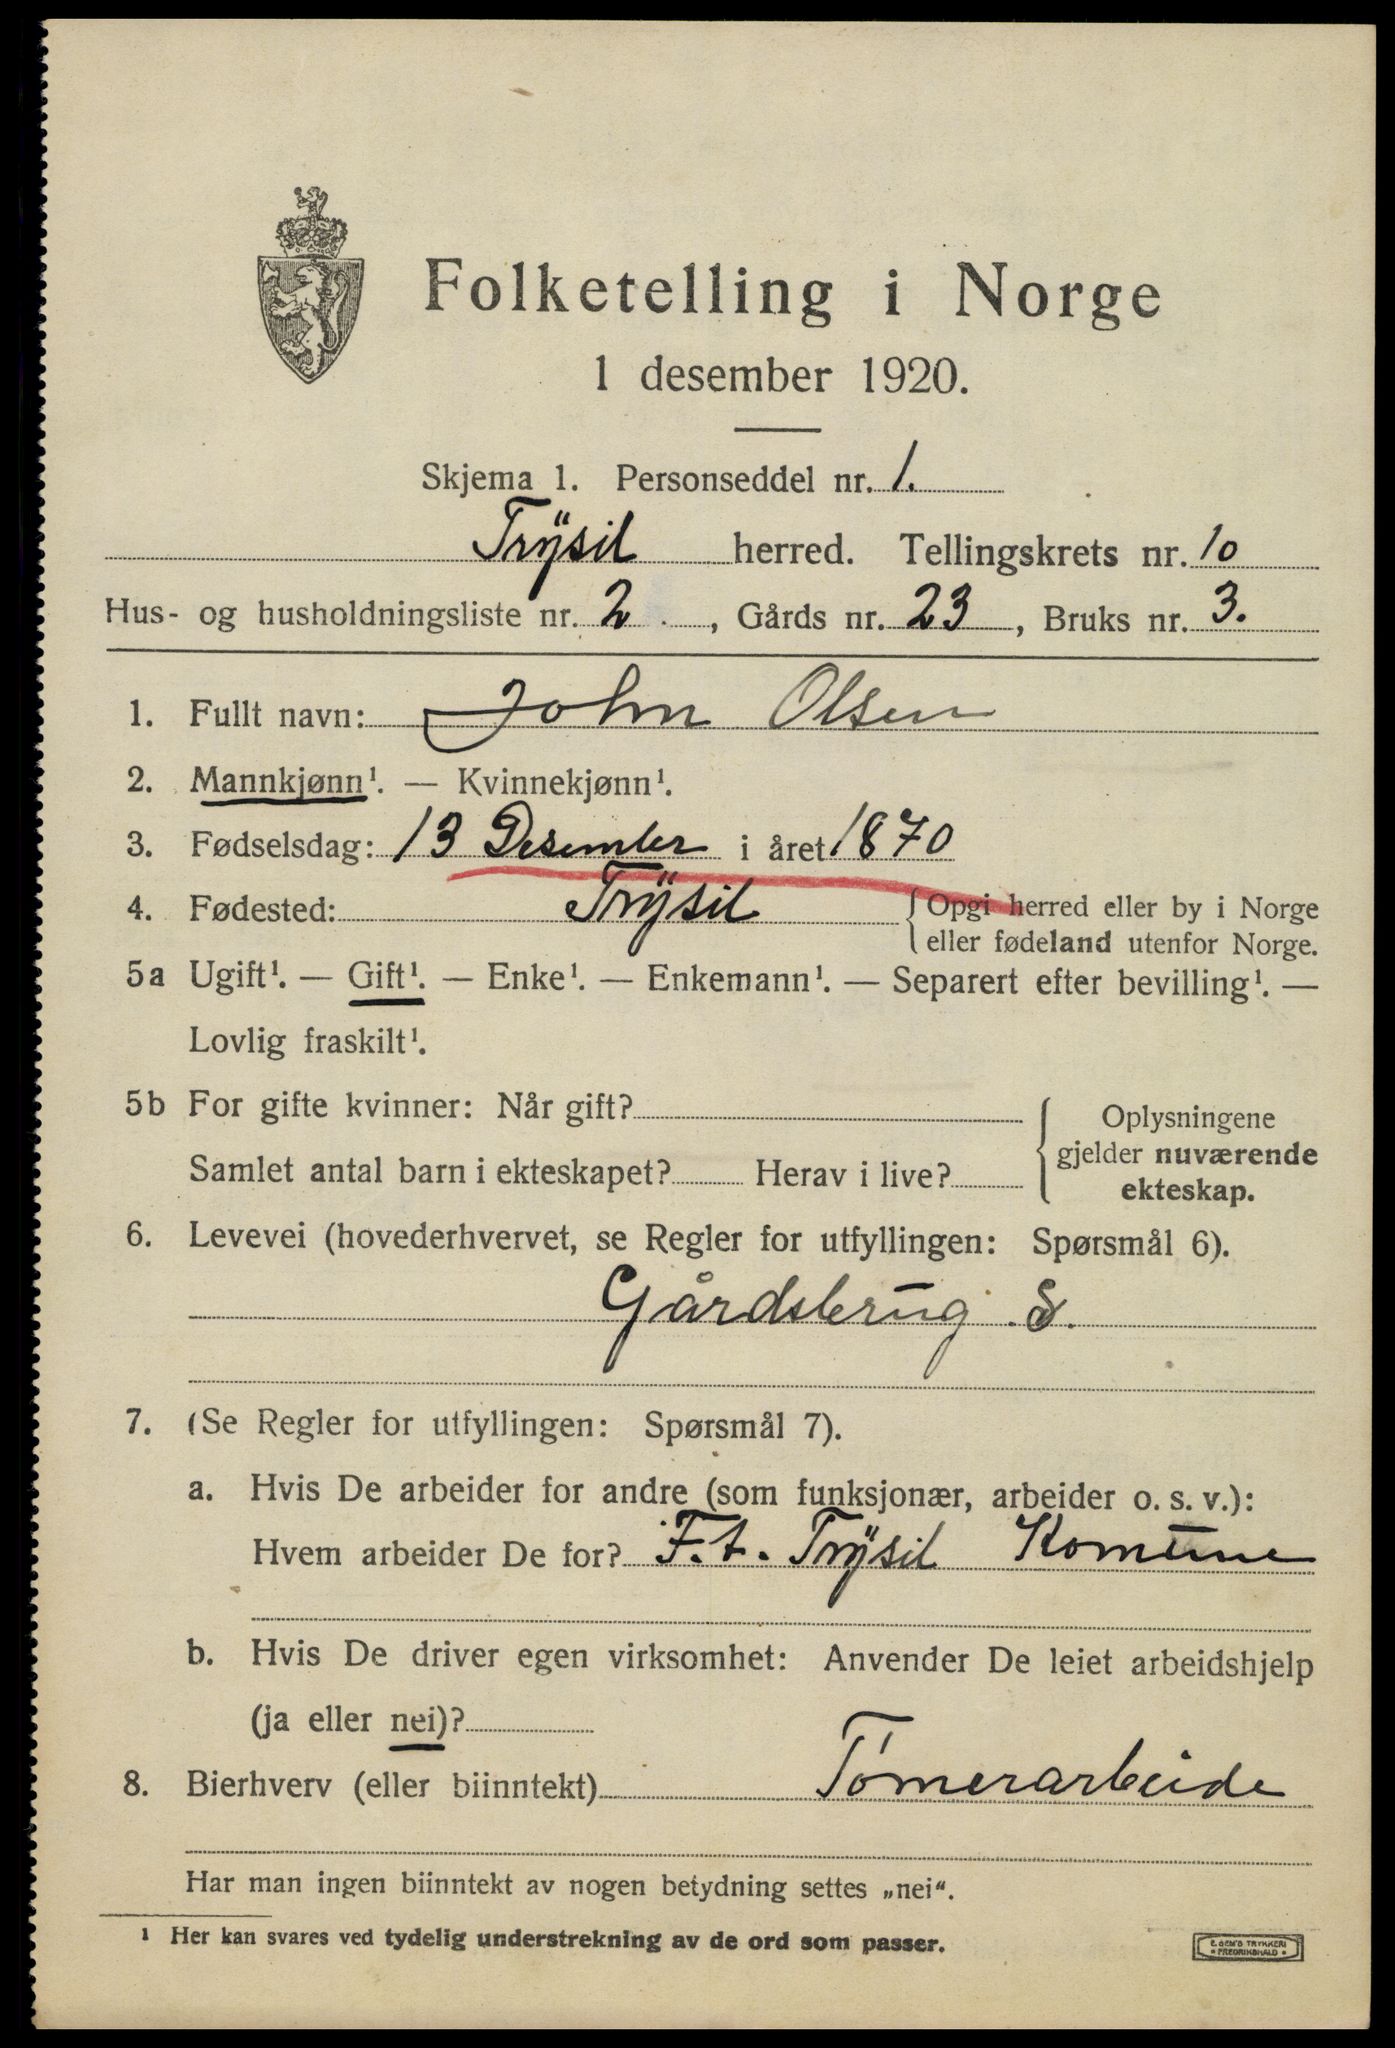 Folketelling i Norge
1 desember 1920.
Skjema 1. Personseddel nr. 1.
Trysil herred. Tellingskrets nr. 10
Hus- og husholdningsliste nr. 2 , Gårds nr. 23 , Bruks nr. 3.
1. Fullt navn: John Olsen
2. Mannkjønn¹. — Kvinnekjønn¹.
3. Fødselsdag: 13 Desember i året 1870
4. Fødested: Trysil { Opgi herred eller by i Norge
eller fødeland utenfor Norge.
5a Ugift¹. — Gift¹. — Enke¹. — Enkemann¹. — Separert efter bevilling¹. —
Lovlig fraskilt¹.
5b For gifte kvinner: Når gift?
Samlet antal barn i ekteskapet? Herav i live?
Oplysningene
gjelder nuværende
ekteskap.
6. Levevei (hovederhvervet, se Regler for utfyllingen: Spørsmål 6).
Gårdsbrug. S.
7. (Se Regler for utfyllingen: Spørsmål 7).
a. Hvis De arbeider for andre (som funksjonær, arbeider o. s. v.):
Hvem arbeider De for? F.t. Trysil Komune
b. Hvis De driver egen virksomhet: Anvender De leiet arbeidshjelp
(ja eller nei)?
8. Bierhverv (eller biinntekt) Tømerarbeide
Har man ingen biinntekt av nogen betydning settes „nei“.
¹ Her kan svares ved tydelig understrekning av de ord som passer.
E. SEM'S TRYKKERI
• FREDRIKSHALD •